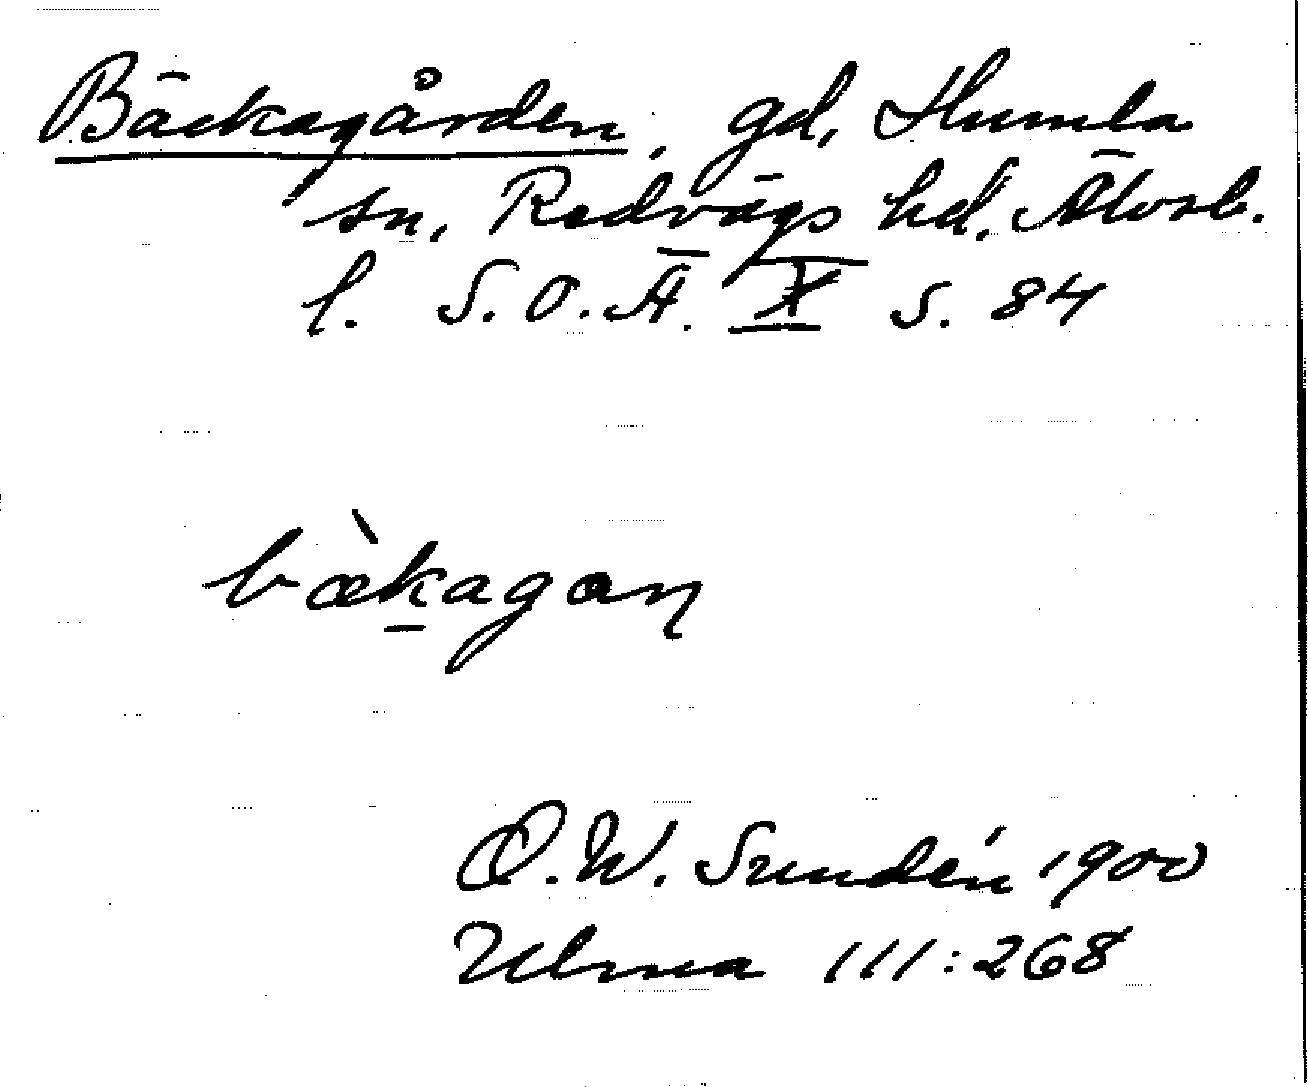 Bäckagården, gd, Humla
sn, Redvägs hd, Älvsb.
l. S.O.Ä. X s. 84
bæ̀kagaɳ
O. W. Sundén 1900
Ulma 111:268